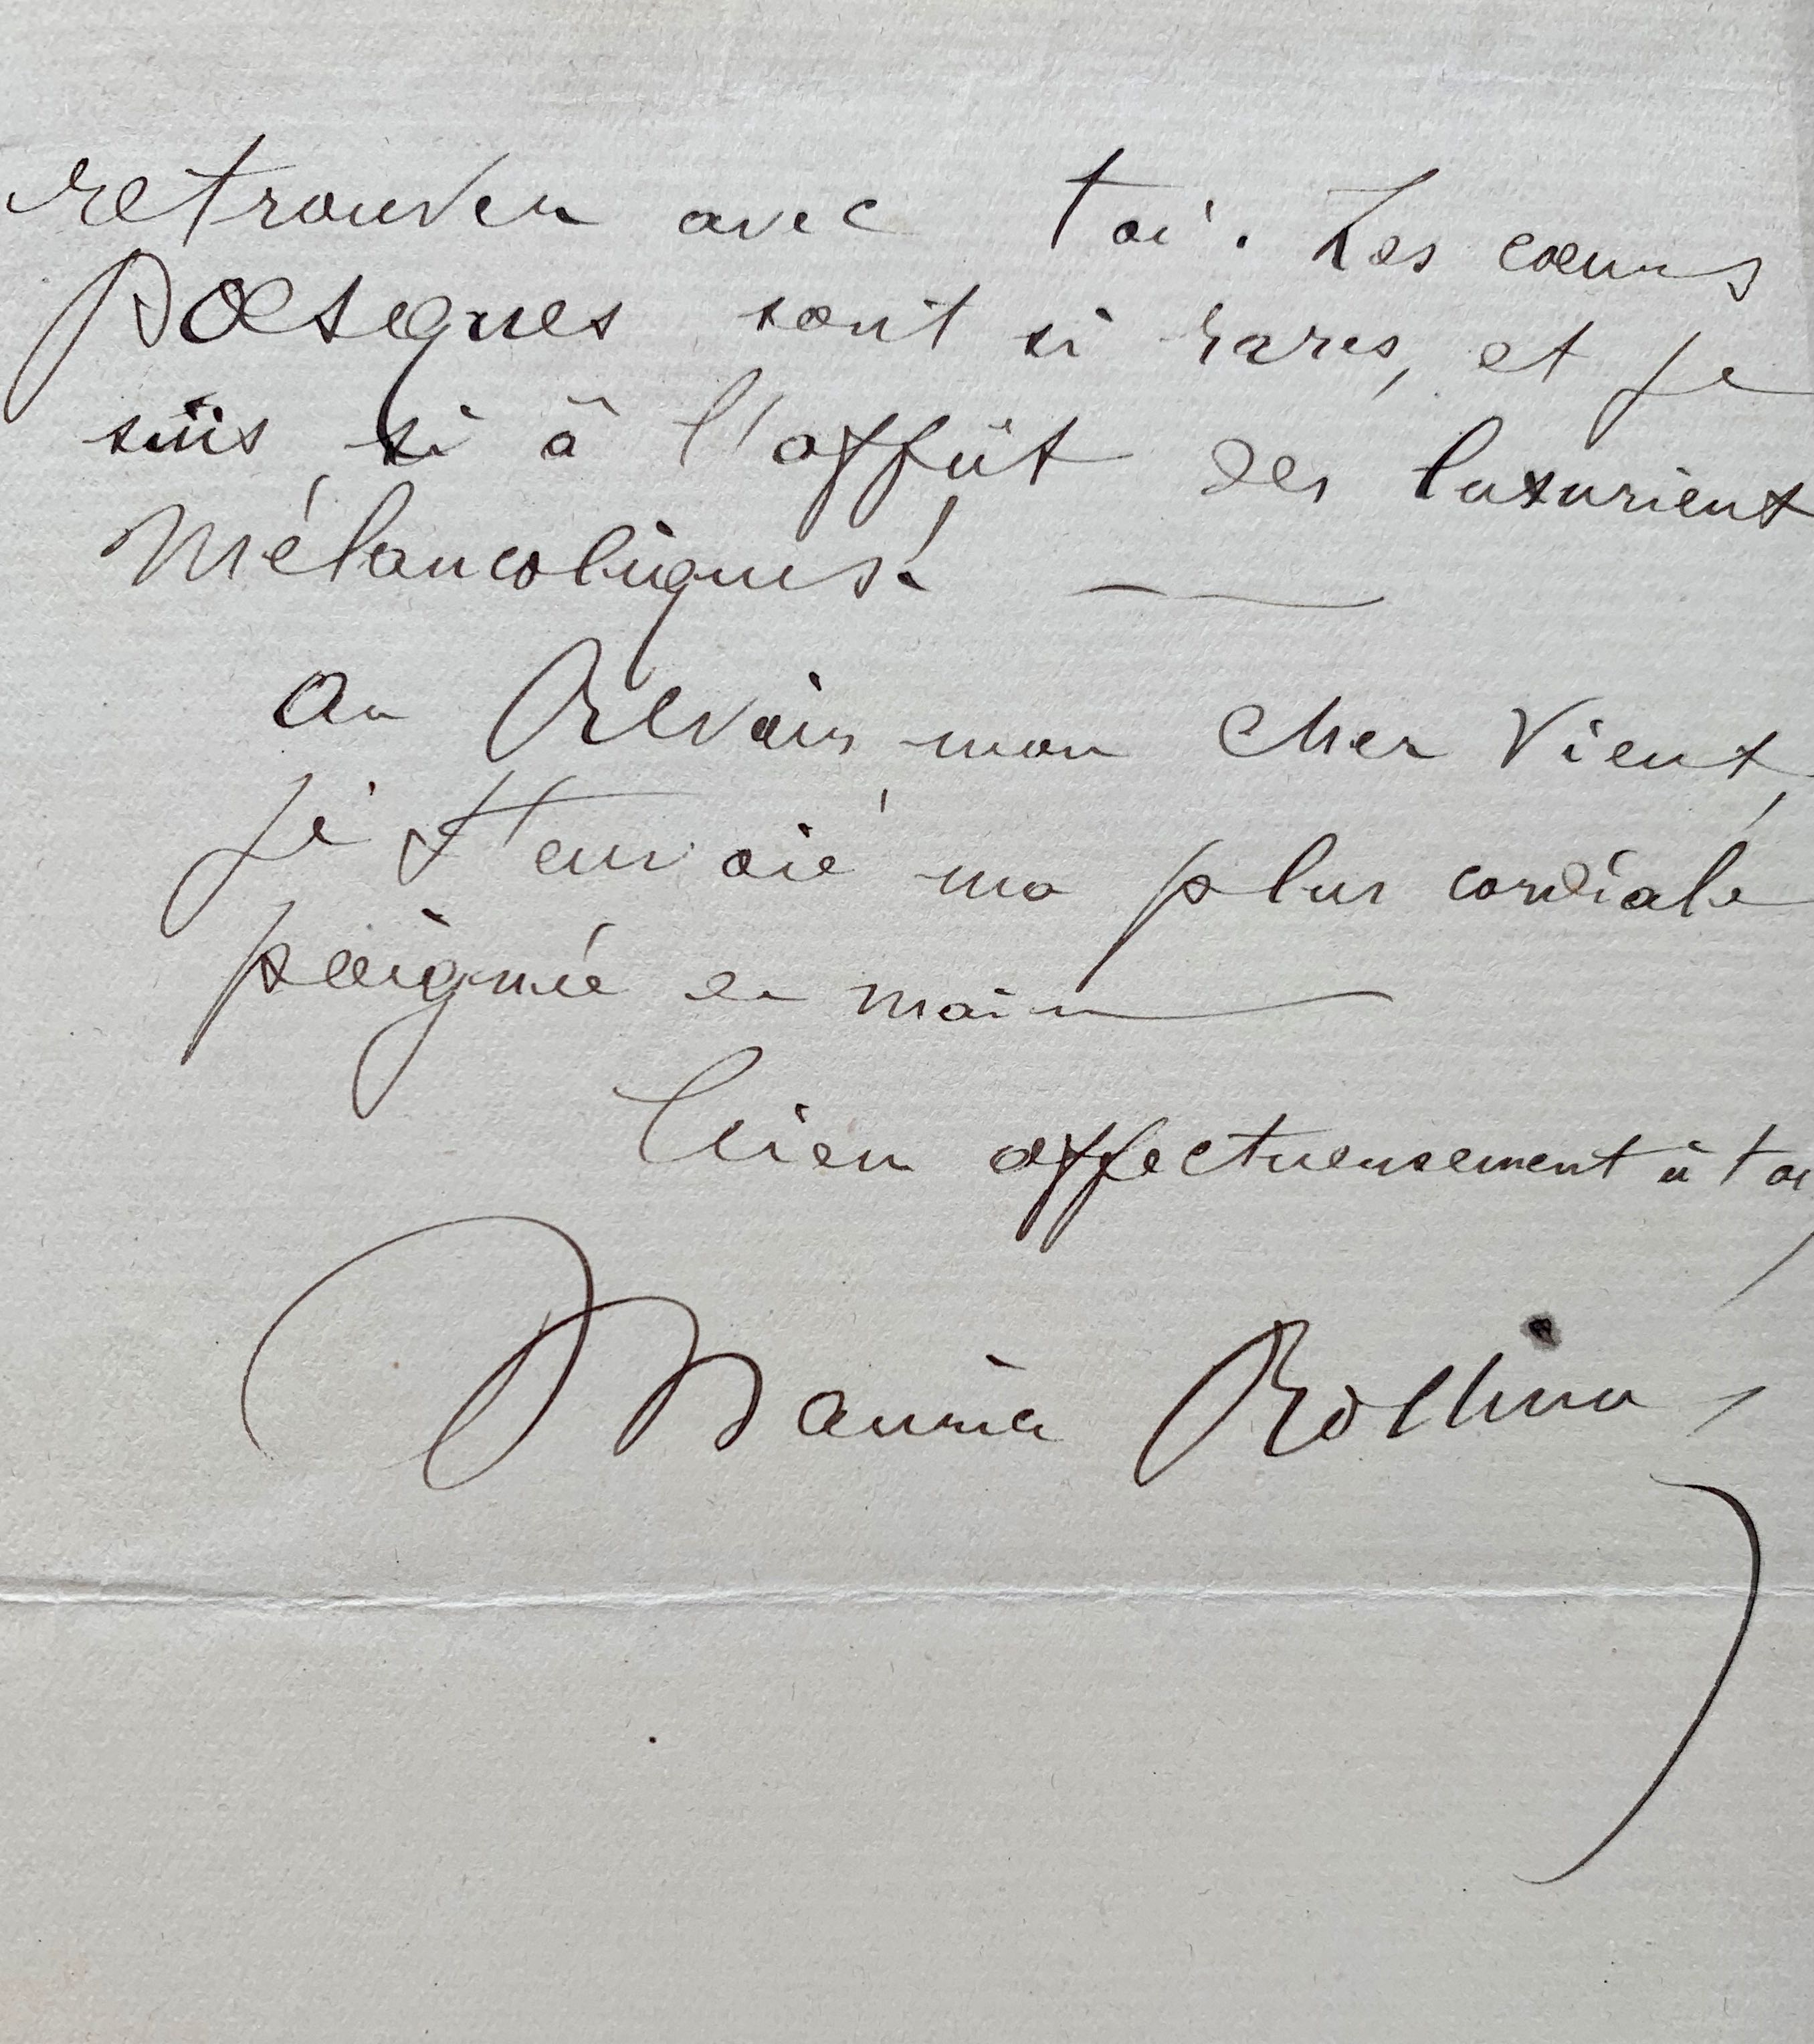 retrouver avec toi. Les cœurs
poesques sont si rares, et je
suis si à l'affût des luxurieux
mélancoliques!
au Revoir mon cher Vieux,
je t'envoie ma plus cordiale
poignée de main
bien affectueusement à toi,
Maurice Rollinat